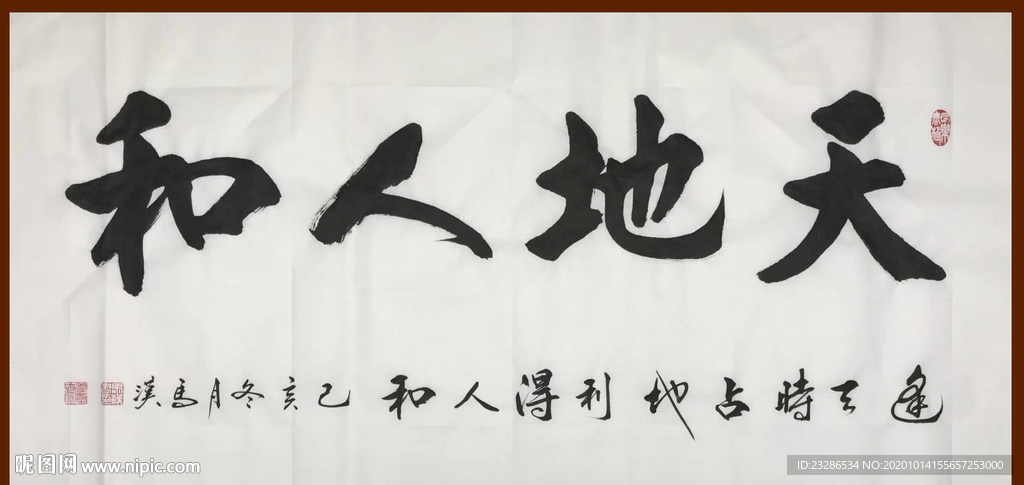 天地人和
逢天時占地利得人和 己亥冬月馬漢
昵图网 www.nipic.com
ID:23286534 NO:20201014155657253000